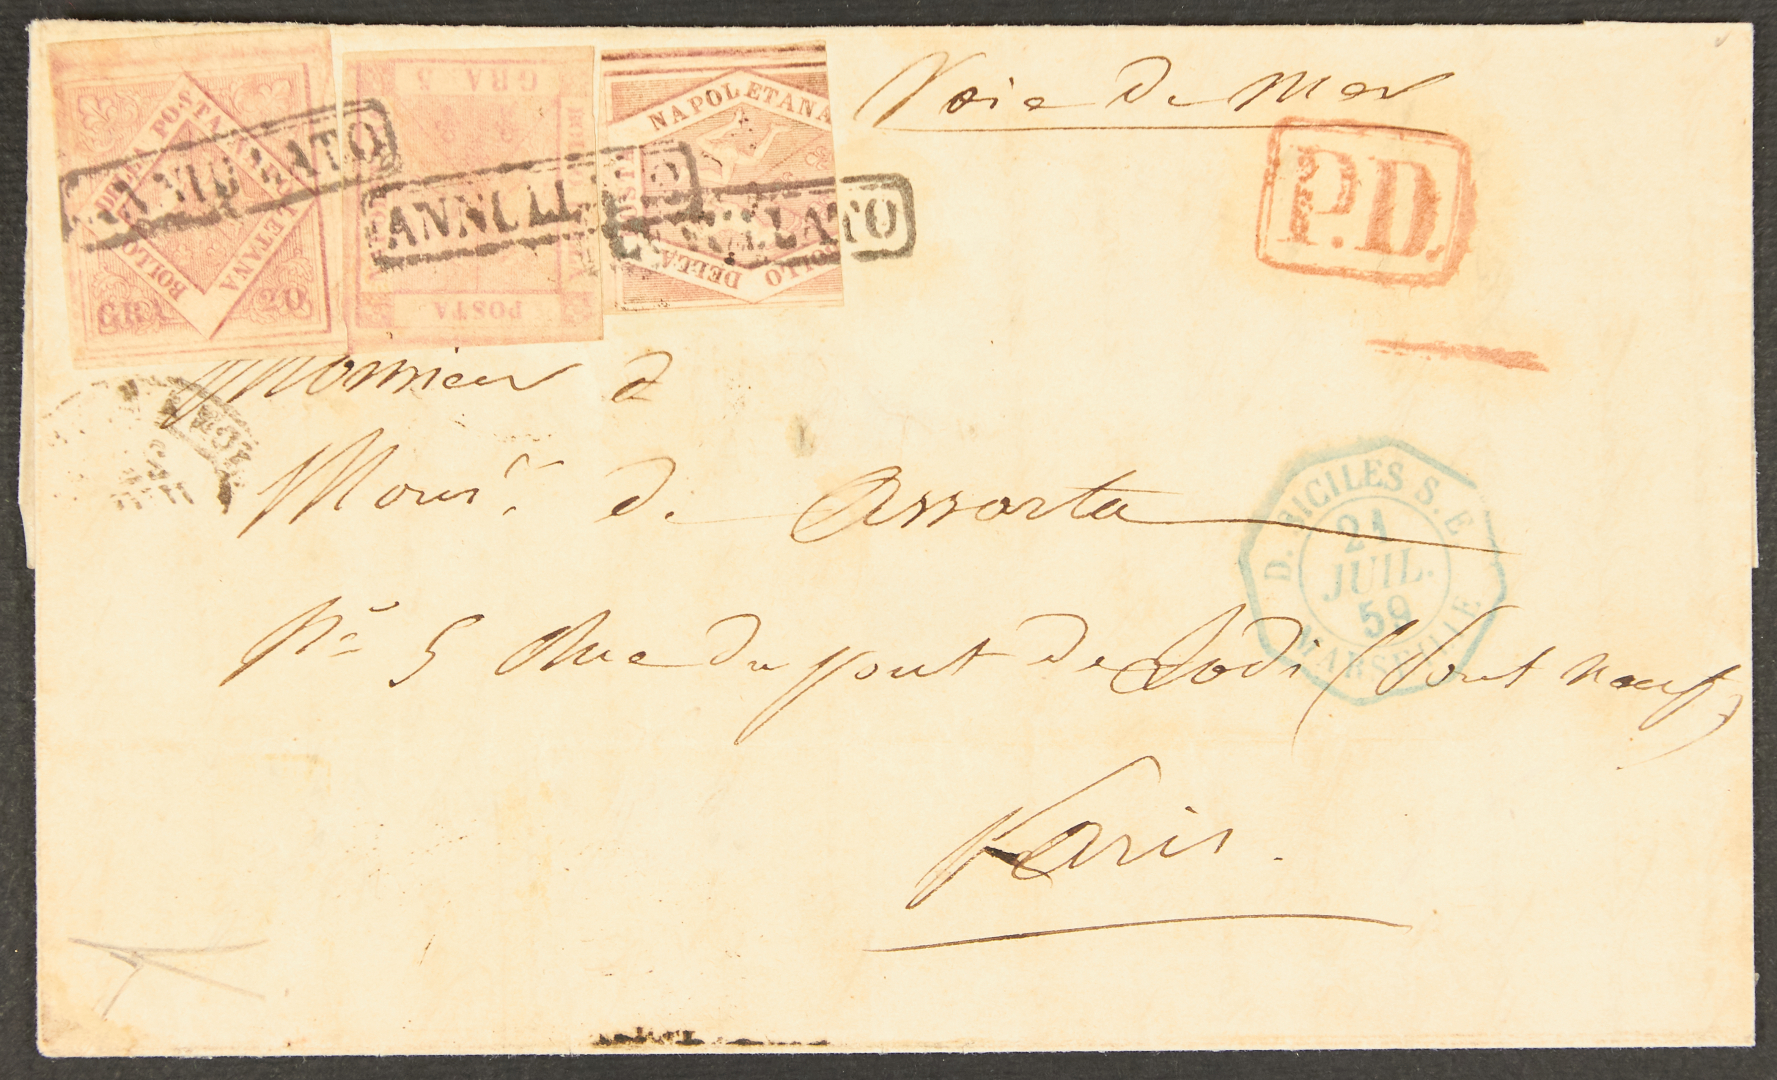 BOLLO DELLA POSTA NAPOLETANA
GRA 20
ANNULLATO
GRA 5
POSTA
ANNULLATO
NAPOLETANA
POSTA
BOLLO DELLA
ANNULLATO
Voie de Mer
P.D.
Monsieur d
Monsr. de Assorta
No 5 Rue du pont de Lodi (Pont neuf)
Paris.
D. SICILES S. E
21
JUIL.
59
MARSEILLE